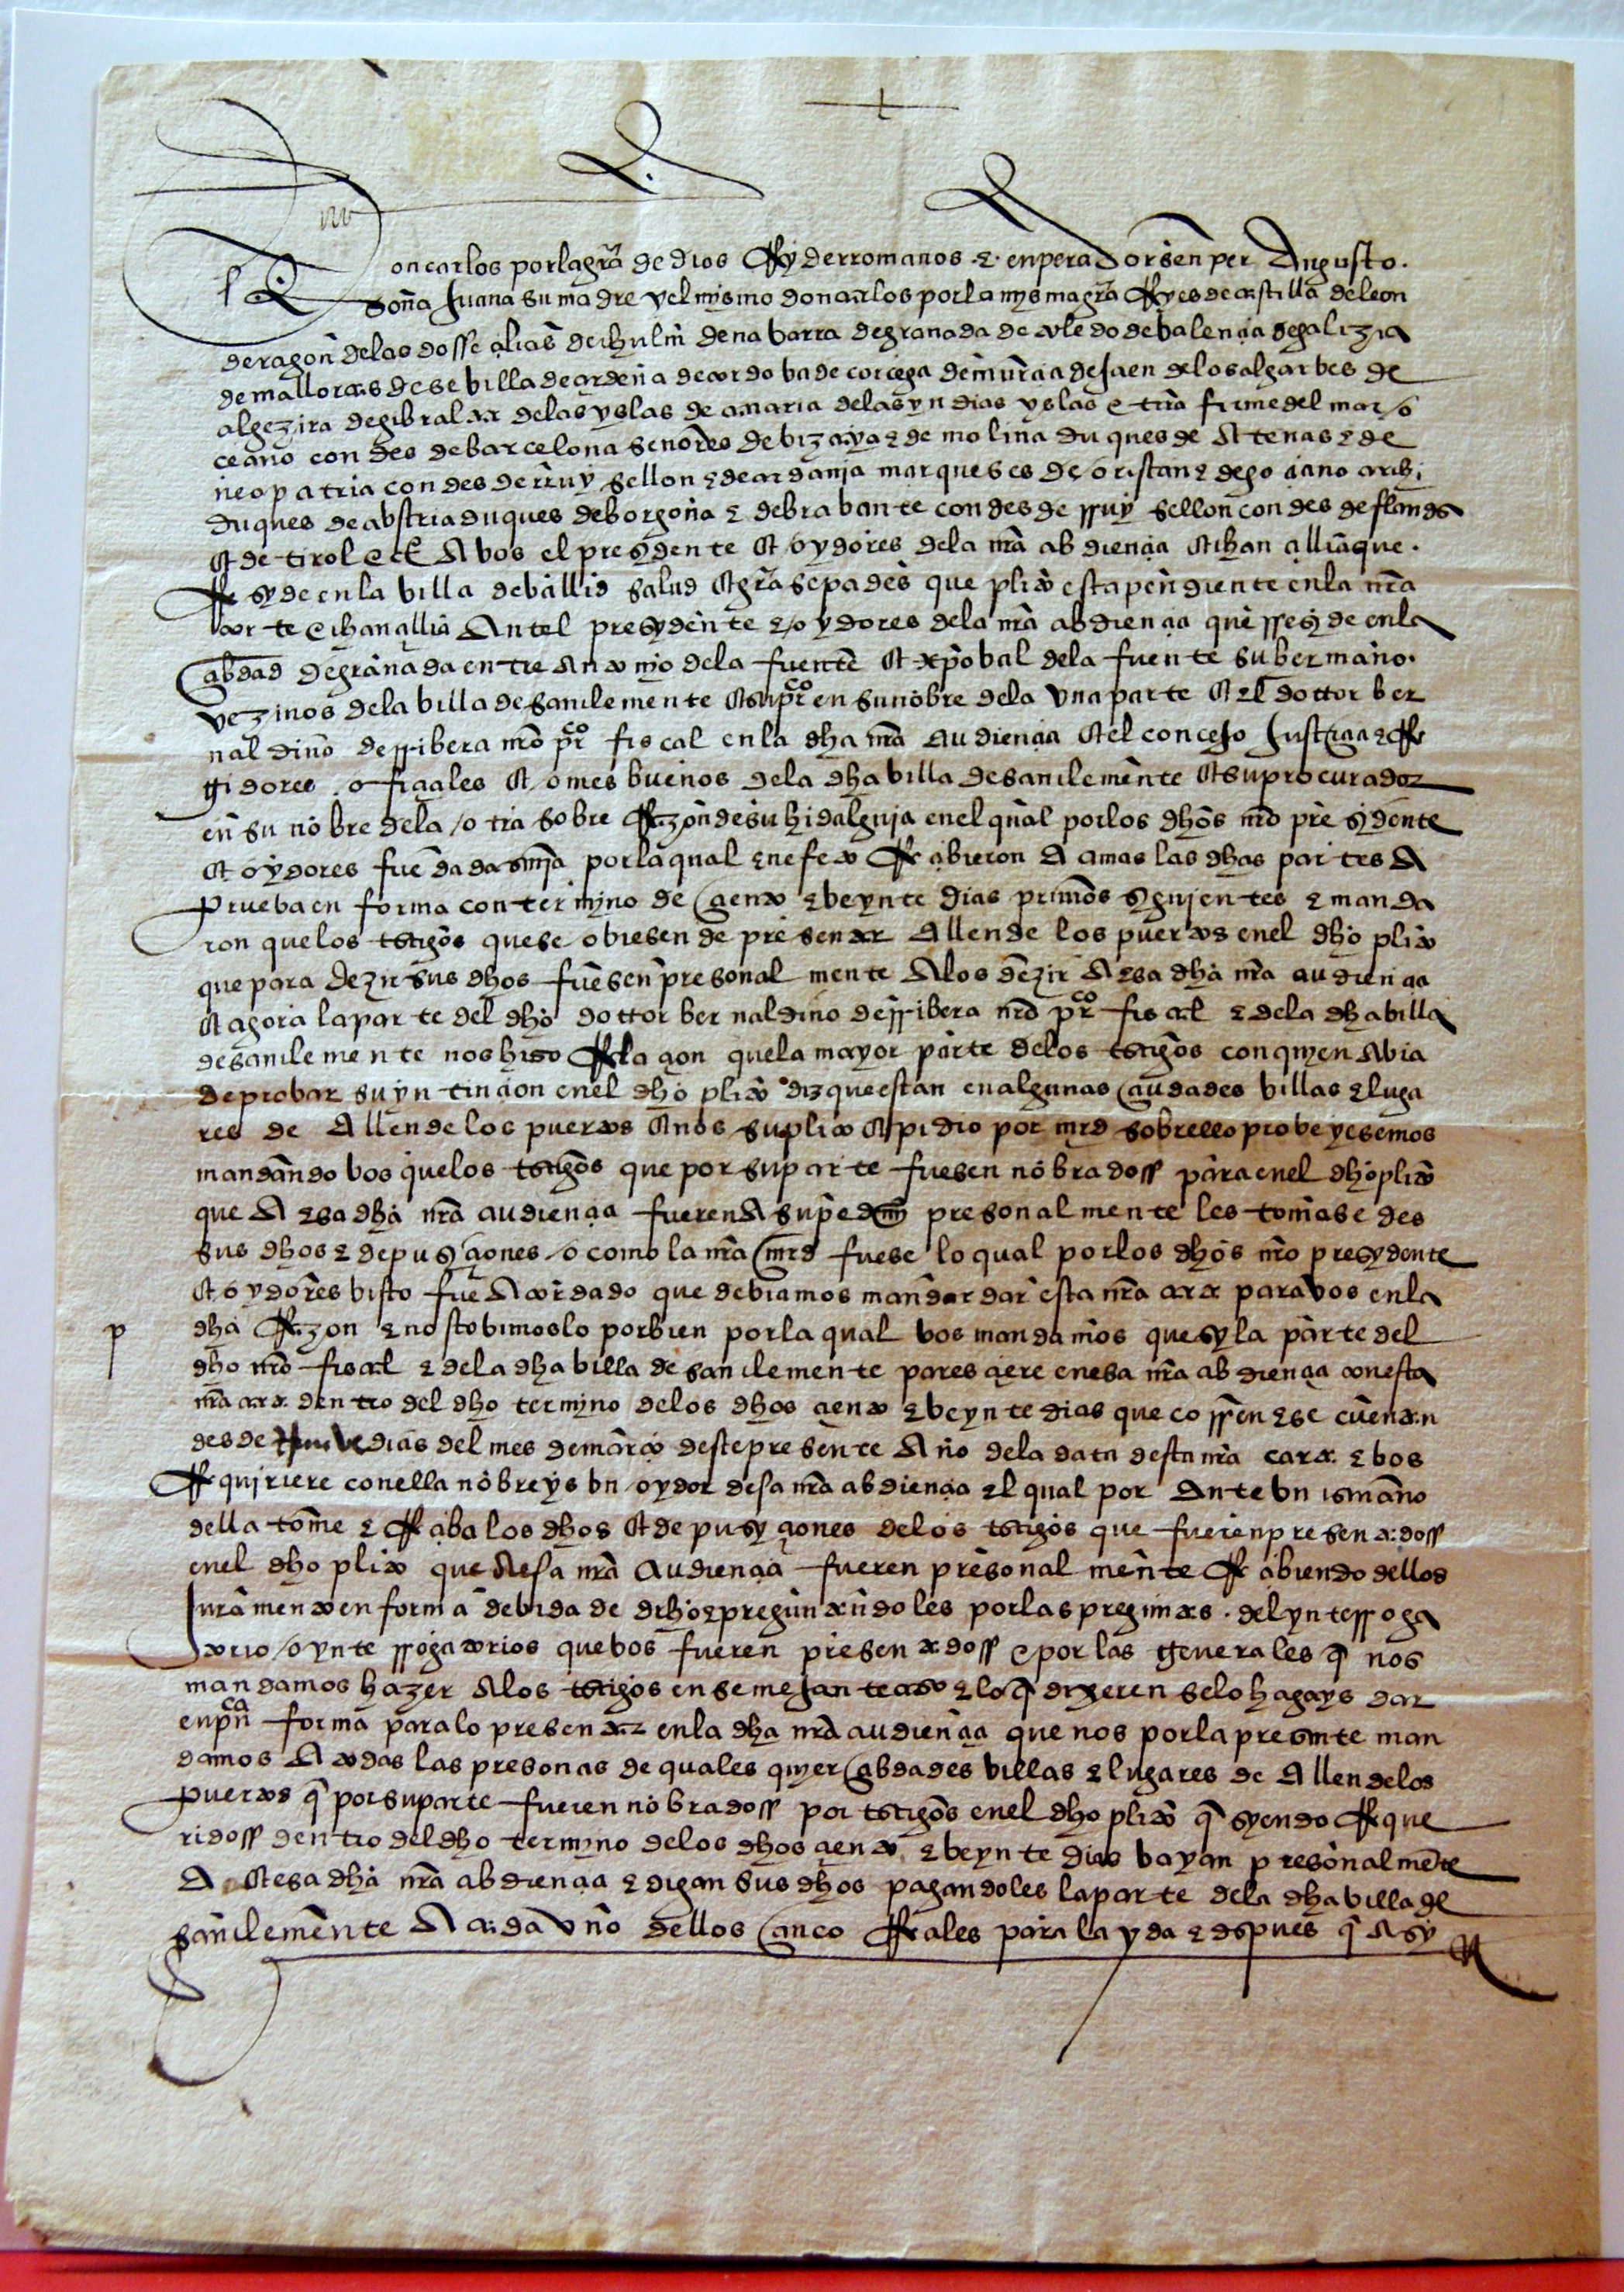 Don carlos por la gra de dios Rey de rromanos e enperador senper Augusto.
doña Juana su madre y el mysmo don carlos por la mysma gra Reyes de castilla de leon
de ragon de las dos seçilias de ihrlm de nabarra de granada de toledo de balençia de galizia
de mallorcas de sebilla de çerdeña de cordoba de corçega de murçia de Jaen de los algarbes de
algezira de gibraltar de las yslas de canaria de las yndias yslas e trra firme del mar o
çeano condes de barcelona señores de bizcaya e de molina duques de Atenas e de
neopatria condes de rruysellon e de çerdania marqueses de oristan e de goçiano archi
duques de abstria duques de borgoña e de brabante condes de rruysellon condes de flandes
E de tirol etc A vos el presydente E oydores de la nra abdiençia E chançilleria que
Resyde en la billa de ballid salud E gra sepades que plito esta pendiente en la nra
corte e chançilleria Antel presydente e oydores de la nra abdiençia que rresyde en la
çibdad de granada entre Antonio de la fuente E xpobal de la fuente su hermano
vezinos de la billa de san clemente E su pror en su nobre de la una parte E el dottor ber
naldino de rribera nro pror fiscal en la dha nra audiençia E el concejo Justiçia e Re
gidores ofiçiales E omes buenos de la dha billa de san clemente E su procurador
en su nobre de la otra sobre Razon de su hidalguia en el qual por los dhos nro presydente
E oydores fue dada snia por la qual en efeto Reçibieron A amas las dhas partes A
prueba en forma con termyno de çiento e beynte dias primos syguientes e manda
ron que los tstigos que se obiesen de presentar Allende los puertos en el dho plito
que para dezir sus dhos fuesen presonalmente A los dezir A esa dha nra audiençia
E agora la parte del dho dottor bernaldino de rribera nro pror fiscal e de la dha billa
de san clemente nos hizo Relaçion que la mayor parte de los tstigos con quien Abia
de probar su yntinçion en el dho plito diz que estan en algunas çiudades billas e luga
res de Allende los puertos E nos suplico E pidio por mrd sobrello probeyesemos
mandando bos que los tstigos que por su parte fuesen nobrados para en el dho plito
que A esa dha nra audiençia fueren A su pedimi presonalmente les tomasedes
sus dhos e depusyçiones o como la nra mrd fuese lo qual por los dhos nro presydente
E oydores bisto fue Acordado que debiamos mandar dar esta nra carta para vos en la
dha Razon e nos tobimoslo por bien por la qual bos mandamos que sy la parte del
dho nro fiscal e de la dha billa de san clemente paresçiere en esa nra abdiençia con esta
nra carta dentro del dho termyno de los dhos çiento e beynte dias que corren e se cuentan
desde nueve dias del mes de março deste presente Año de la data desta nra carta e bos
Requiriere con ella nobreys un oydor desa nra abdiençia el qual por Ante un escriuano
della tome e Reçiba los dhos E depusyçiones de los tstigos que fueren presentados
en el dho plito que A esa nra Audiençia fueren presonalmente Reçibiendo dellos
Juramento en forma debida de drho e preguntandoles por las preguntas del ynterroga
torio o ynterrogatorios que bos fueren presentados e por las generales q nos
mandamos hazer A los tstigos en semejante caso e lo q dixeren se lo hagays dar
en pca forma para lo presentar en la dha nra audiençia que nos por la presente man
damos A todas las presonas de quales quier çibdades billas e lugares de Allende los
puertos q por su parte fueren nobrados por tstigos en el dho plito q syendo Reque
ridos dentro del dho termyno de los dhos çiento e beynte dias bayan presonalmente
A esa dha nra abdiençia e digan sus dhos pagandoles la parte de la dha billa de
san clemente A cada uno dellos çinco Reales para la yda e despues q Asy